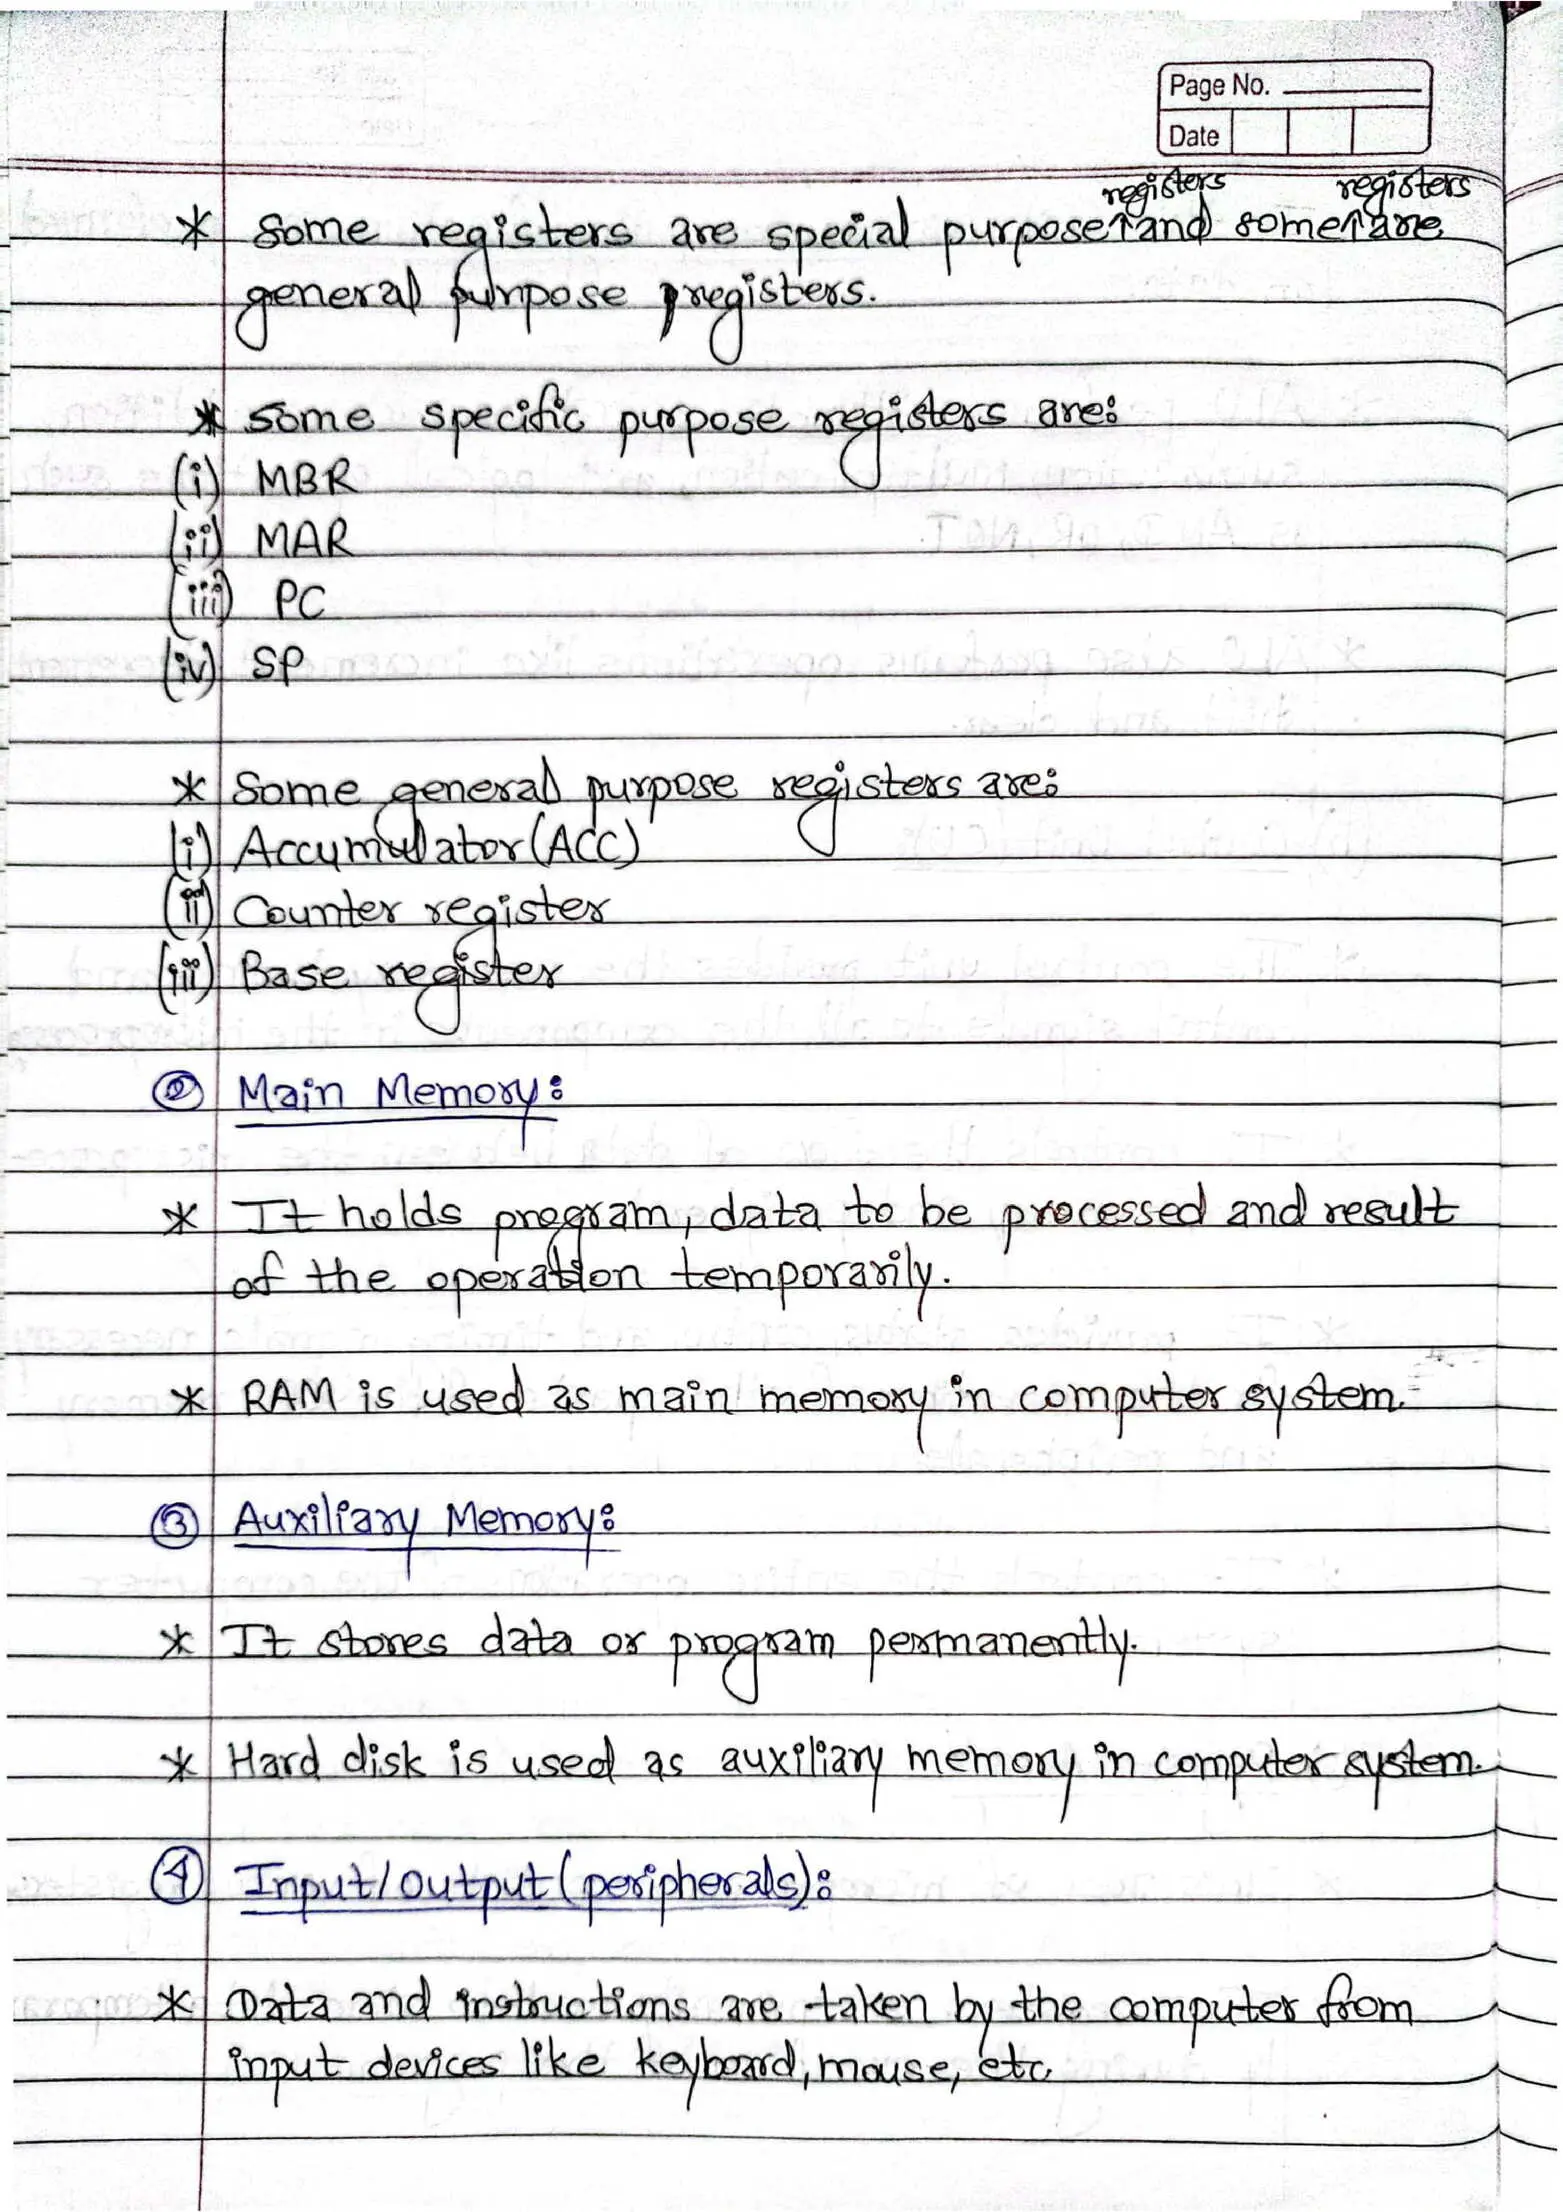 Page No.
Date
registers registers
* Some registers are special purpose↑and some↑are
general purpose registers.
* Some specific purpose registers are:
(i) MBR
(ii) MAR
(iii) PC
(iv) SP
* Some general purpose registers are:
(i) Accumulator (ACC)
(ii) Counter register
(iii) Base register
② Main Memory:
* It holds program, data to be processed and result
of the operation temporarily.
* RAM is used as main memory in computer system.
③ Auxiliary Memory:
* It stores data or program permanently.
* Hard disk is used as auxiliary memory in computer system.
④ Input/Output (peripherals):
* Data and instructions are taken by the computer from
input devices like keyboard, mouse, etc.